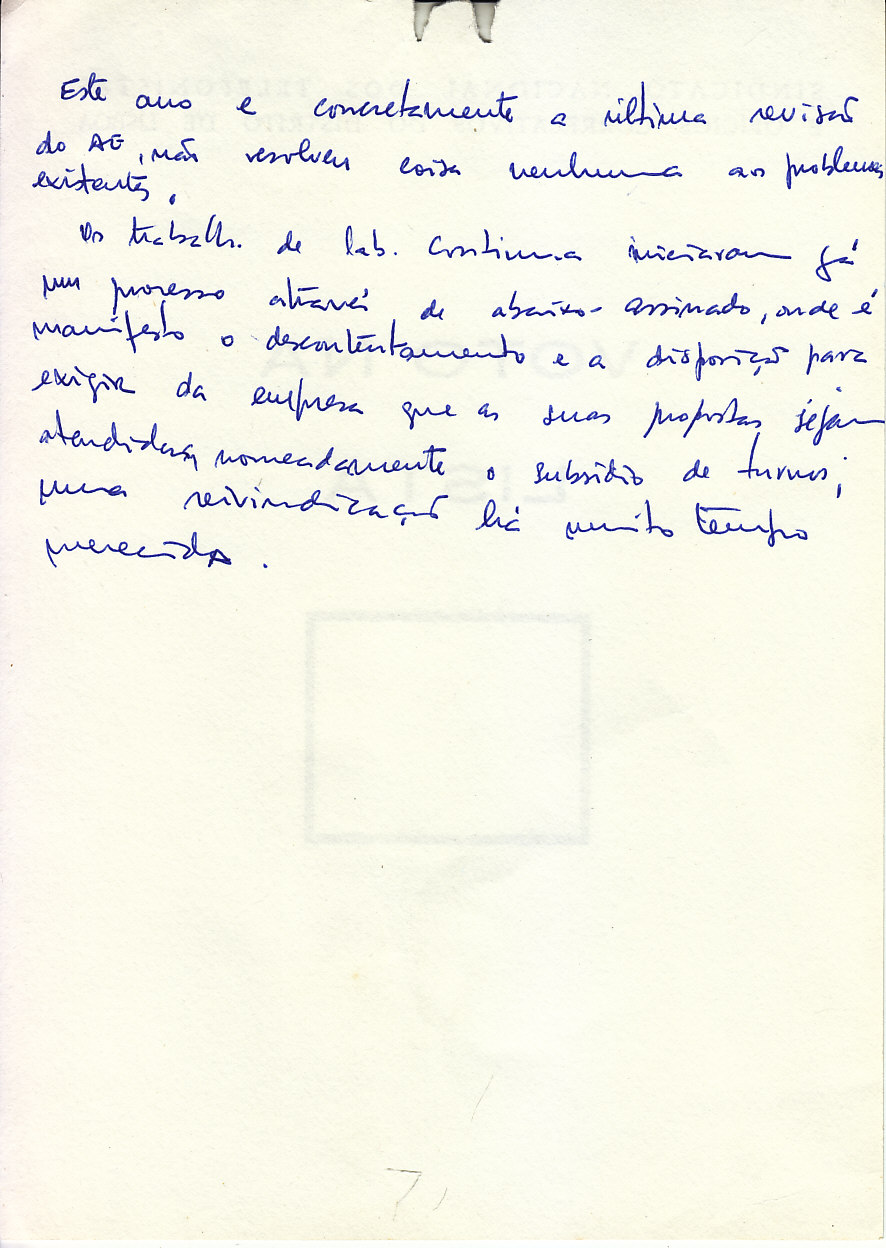 Este ano e concretamente a última revisão
do AE, não resolveu coisa nenhuma aos problemas
existentes.
Os trabalh. de lab. contínua iniciaram já
um processo através de abaixo-assinado, onde é
manifesto o descontentamento e a disposição para
exigir da empresa que as suas propostas sejam
atendidas, nomeadamente o subsídio de turnos;
uma reivindicação há muito tempo
merecida.